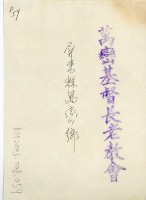 P.54
萬巒基督長老教會
屏東縣萬巒鄉